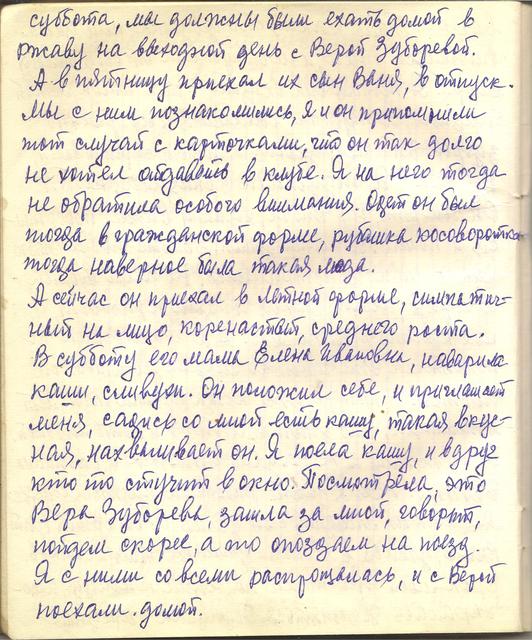 суббота, мы должны были ехать домой в
Ржаву на выходной день с Верой Зуборевой.
А в пятницу приехал их сын Ваня, в отпуск.
Мы с ним познакомились, я и он припомнили
тот случай с карточками, что он так долго
не хотел отдавать в клубе. Я на него тогда
не обратила особого внимания. Одет он был
тогда в гражданской форме, рубашка косоворотка
тогда наверное была такая мода.
А сейчас он приехал в летной форме, симпатич-
ный на лицо, коренастый, среднего роста.
В субботу его мама Елена Ивановна, наварила
каши, сливухи. Он положил себе, и приглашает
меня, садись со мной есть кашу, такая вкус-
ная, нахваливает он. Я поела кашу, и вдруг
кто то стучит в окно. Посмотрела, это
Вера Зуборева, зашла за мной, говорит,
пойдем скорее, а то опоздаем на поезд.
Я с ними со всеми распрощалась, и с Верой
поехали домой.